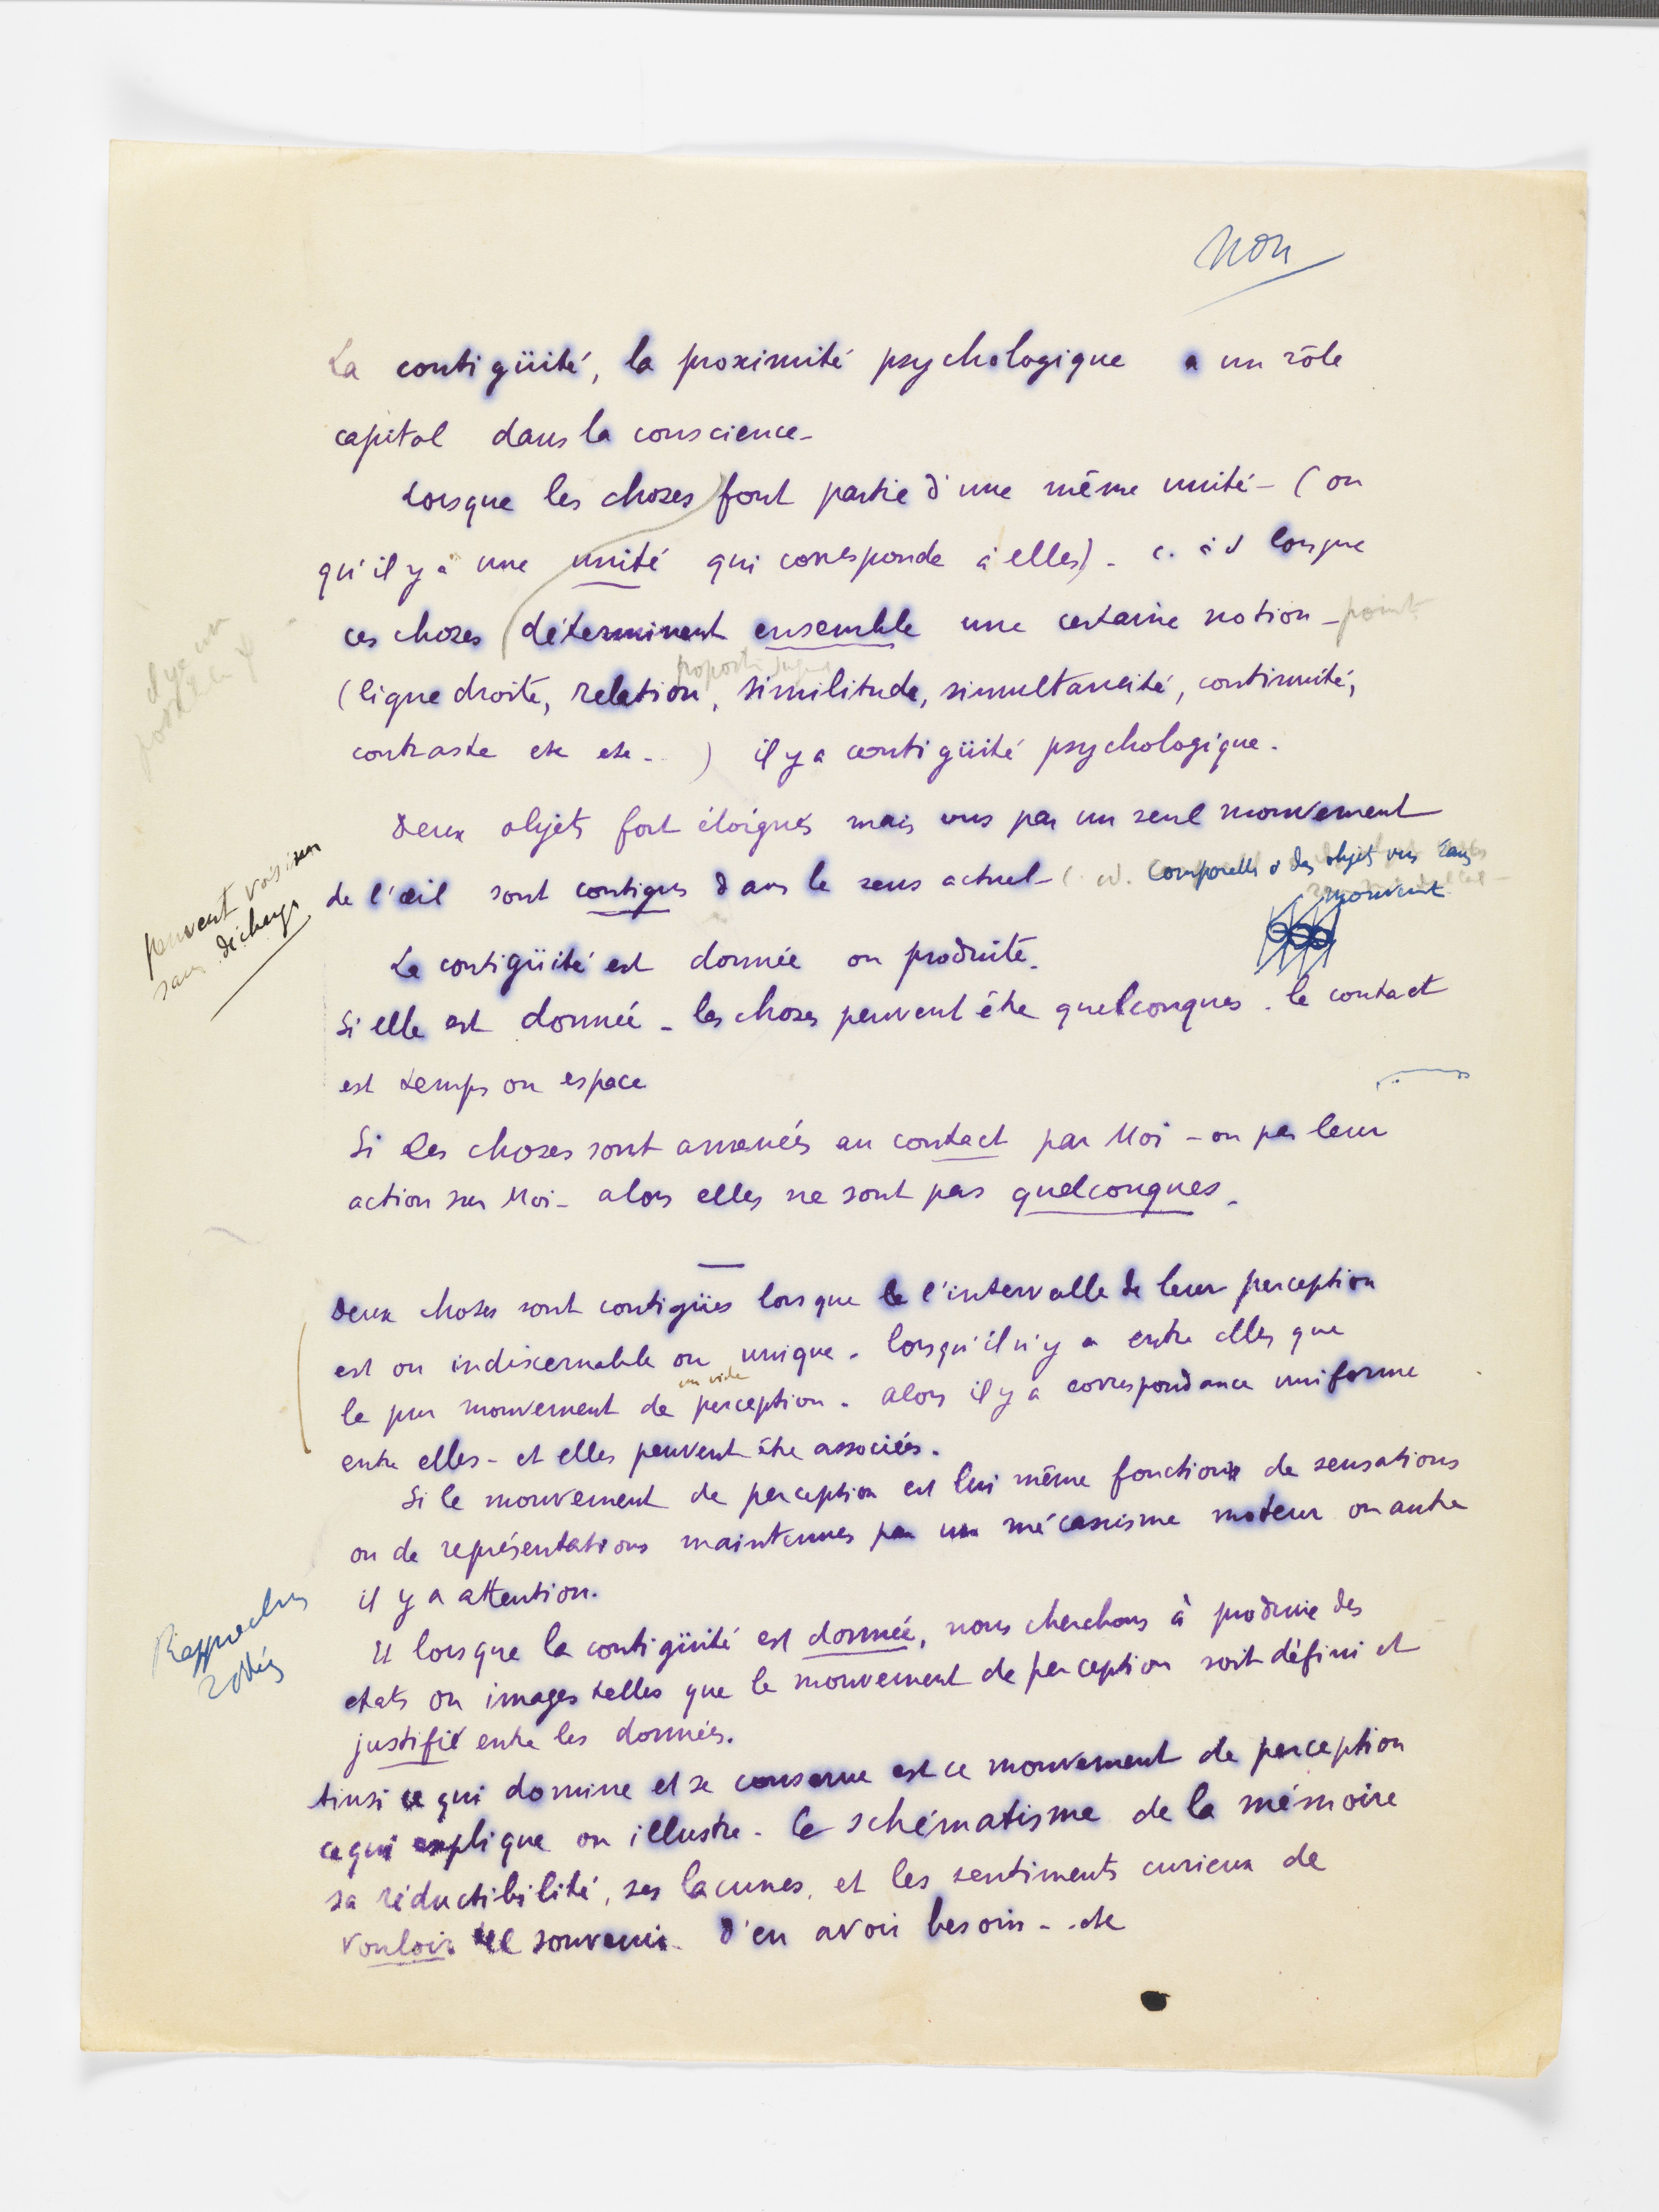 non
La contigüité, la proximité psychologique a un rôle
capital dans la conscience -
Lorsque les choses font partie d'une même unité - (ou
qu'il y a une unité qui corresponde à elles) - c. à d lorsque
ces choses déterminent ensemble une certaine notion - point
(ligne droite, relation, similitude, simultanéité, continuité,
contraste etc etc - ) il y a contigüité psychologique.
Deux objets fort éloignés mais vus par un seul mouvement
de l'œil sont contigus dans le sens actuel - comparables à des objets vus sans
mouvement
peuvent voisiner
sans décharge
La contigüité est donnée ou produite.
Si elle est donnée - les choses peuvent être quelconques. le contact
est temps ou espace
Si les choses sont amenées au contact par Moi - ou par leur
action sur Moi - alors elles ne sont pas quelconques -
Deux choses sont contigües lorsque le l'intervalle de leur perception
est ou indiscernable ou unique. lorsqu'il n'y a entre elles que
un vide
le pur mouvement de perception. alors il y a correspondance uniforme
entre elles - et elles peuvent être associées.
Si le mouvement de perception est lui même fonction de sensations
ou de représentations maintenues par un mécanisme moteur ou autre
il y a attention.
Et lorsque la contigüité est donnée, nous cherchons à produire des
etats ou images telles que le mouvement de perception soit défini et
justifié entre les données.
Ainsi ce qui domine et se conserve est ce mouvement de perception
ce qui explique ou illustre - le schématisme de la mémoire
sa réductibilité, ses lacunes, et les sentiments curieux de
vouloir se souvenir - d'en avoir besoin - etc